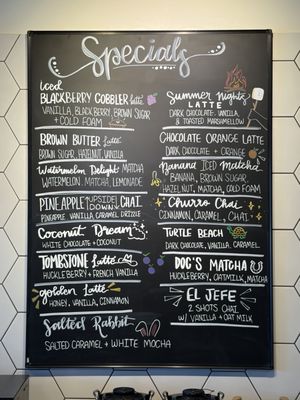 Specials
Iced
BLACKBERRY COBBLER latte
VANILLA, BLACKBERRY, BROWN SUGAR
+ COLD FOAM
BROWN BUTTER latte
BROWN SUGAR, HAZELNUT, VANILLA
Watermelon Delight MATCHA
WATERMELON, MATCHA, LEMONADE
PINEAPPLE UPSIDE DOWN CHAI
PINEAPPLE, VANILLA, CARAMEL DRIZZLE
Coconut Dream
WHITE CHOCOLATE + COCONUT
TOMBSTONE Latte
HUCKLEBERRY + FRENCH VANILLA
golden Latte
HONEY, VANILLA, CINNAMON
Salted Rabbit
SALTED CARAMEL + WHITE MOCHA
Summer Nights
LATTE
DARK CHOCOLATE, VANILLA
& TOASTED MARSHMALLOW
CHOCOLATE ORANGE LATTE
DARK CHOCOLATE + ORANGE
Banana ICED Matcha
BANANA, BROWN SUGAR,
HAZELNUT, MATCHA, COLD FOAM
Churro Chai
CINNAMON, CARAMEL, CHAI
TURTLE BEACH
DARK CHOCOLATE, VANILLA, CARAMEL
DOC'S MATCHA
HUCKLEBERRY, OATMILK, MATCHA
EL JEFE
2 SHOTS CHAI
W/ VANILLA + OAT MILK